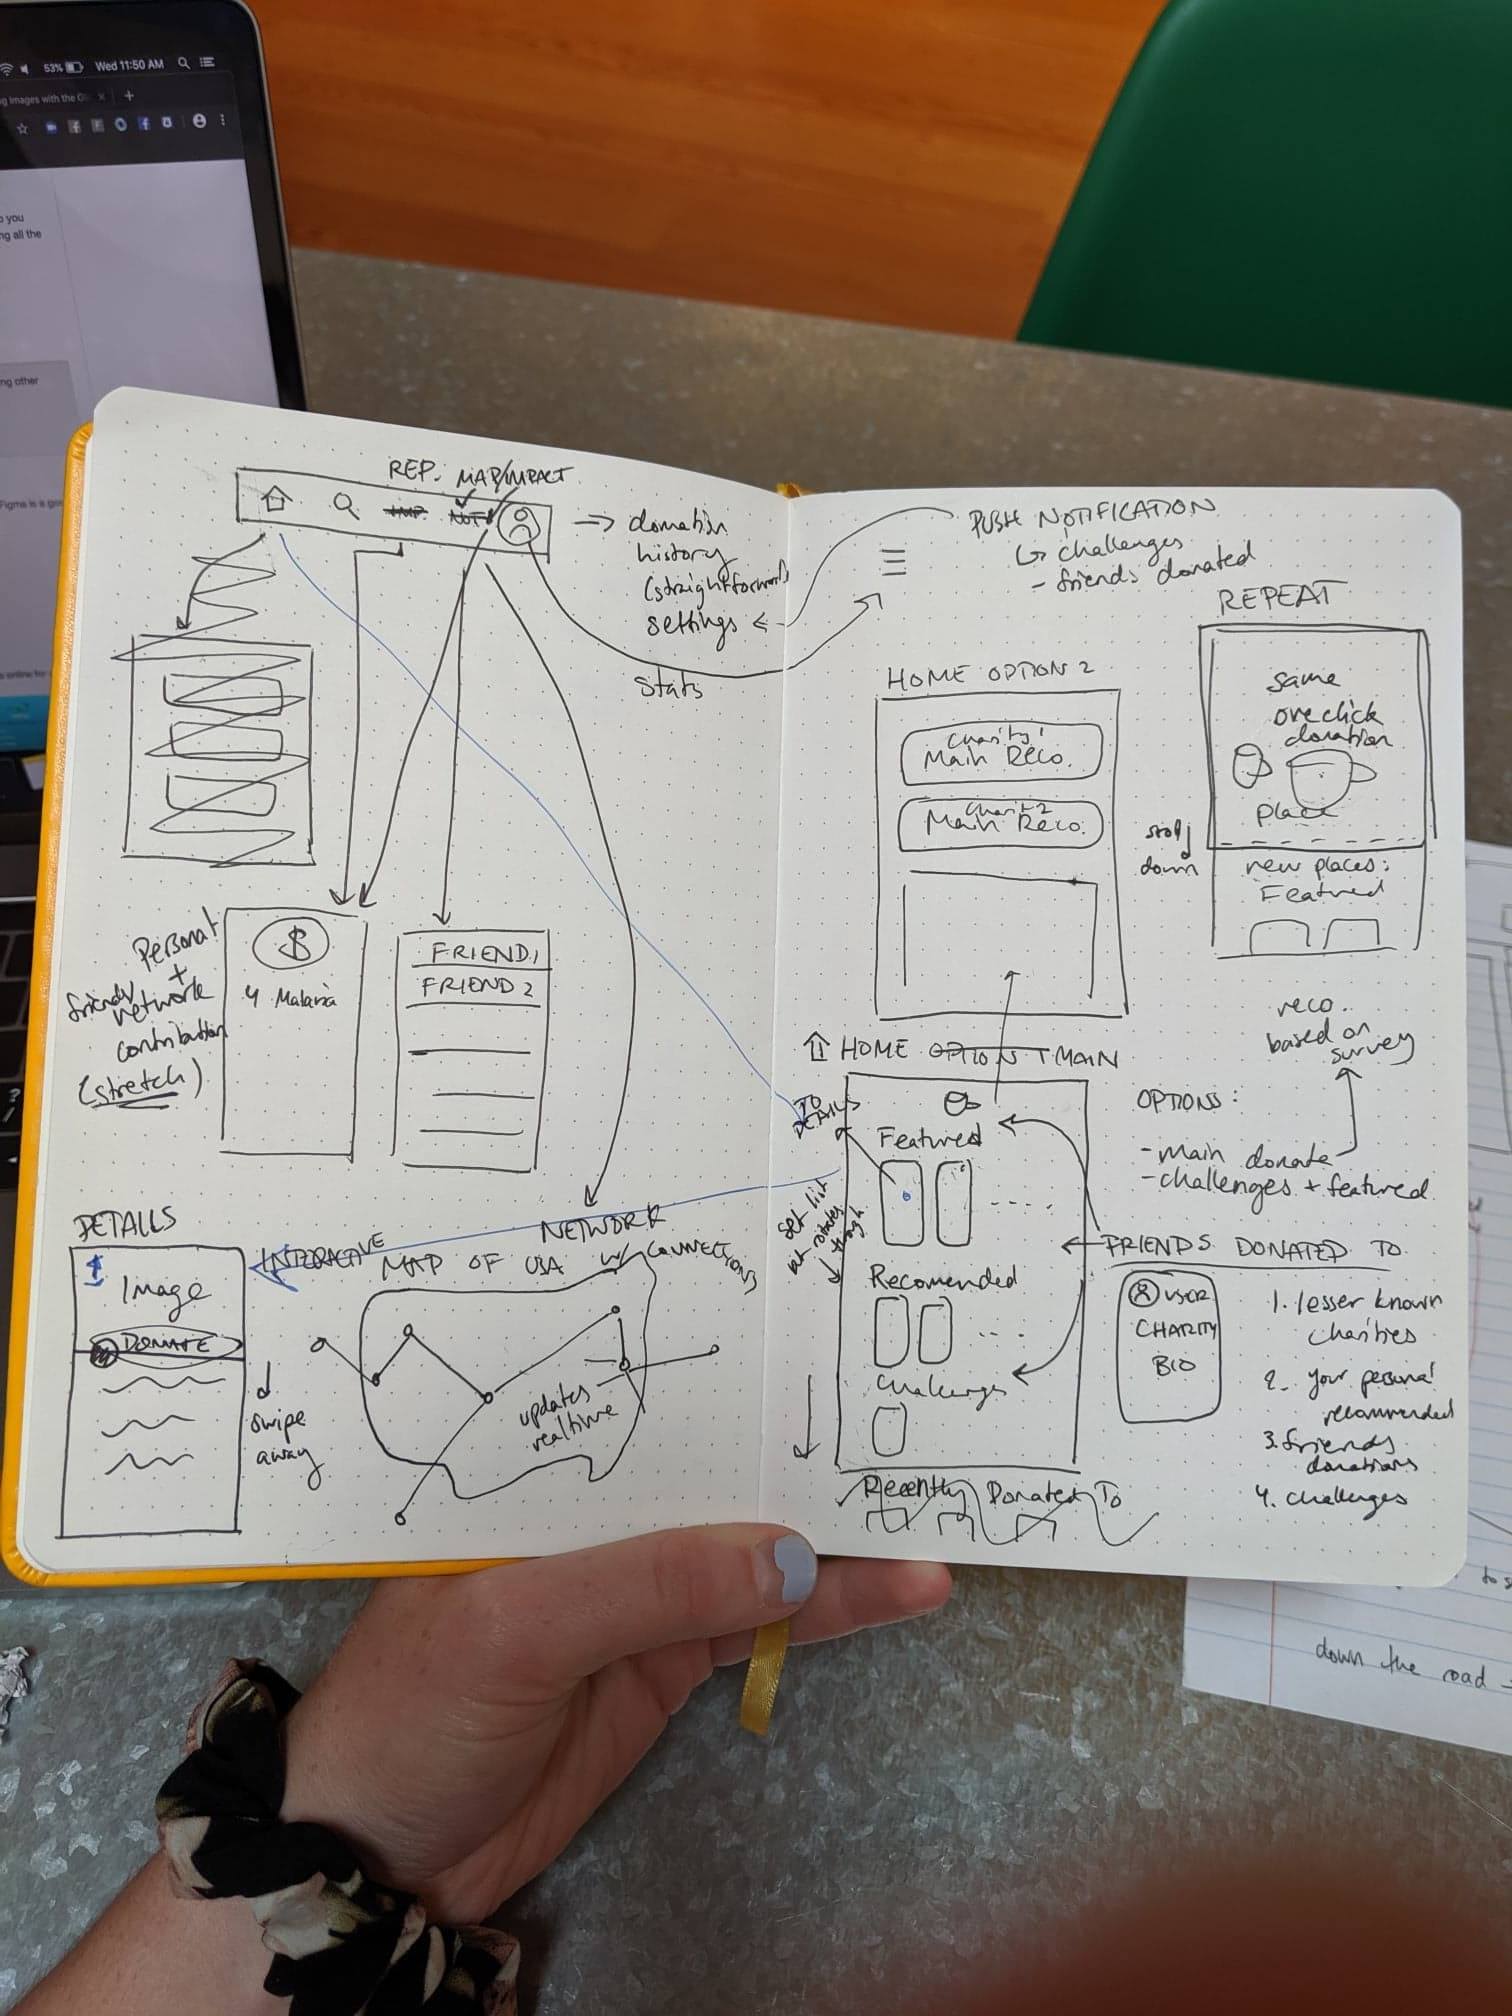 53%
Wed 11:50 AM
g Images with the G
o you
ng all the
ng other
Figma is a go
s online for
REP. MAP/IMPACT
IMP.
NOT
→ donation
history
(straightforward)
settings ←
Stats
Personal
+
friends/
network
contribution
(stretch)
$
4 Malaria
FRIEND 1
FRIEND 2
DETAILS
Image
DONATE
swipe
away
NETWORK
INTERACTIVE MAP OF USA W/ CONNECTIONS
updates
realtime
PUSH NOTIFICATION
↳ challenges
- friends donated
REPEAT
same
one click
donation
place
scroll
down
new places:
Featured
HOME OPTION 2
Charity 1
Main Reco.
Charity 2
Main Reco.
reco.
based on
survey
HOME OPTION 1 MAIN
TO
DETAILS
Featured
set list
but rotates
through
Recomended
Challenges
Recently Donated To
OPTIONS:
- main donate
- challenges + featured
← FRIENDS DONATED TO
USER
CHARITY
BIO
1. lesser known
charities
2. your personal
recommended
3. friends
donations
4. challenges
to s
down the road →